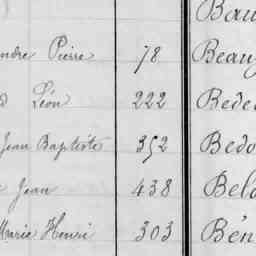 Bau
ndre Pierre 78 Beau
d Léon 222 Bede
Jean Baptiste 352 Bedo
e Jean 438 Bela
Marie Henri 303 Bén